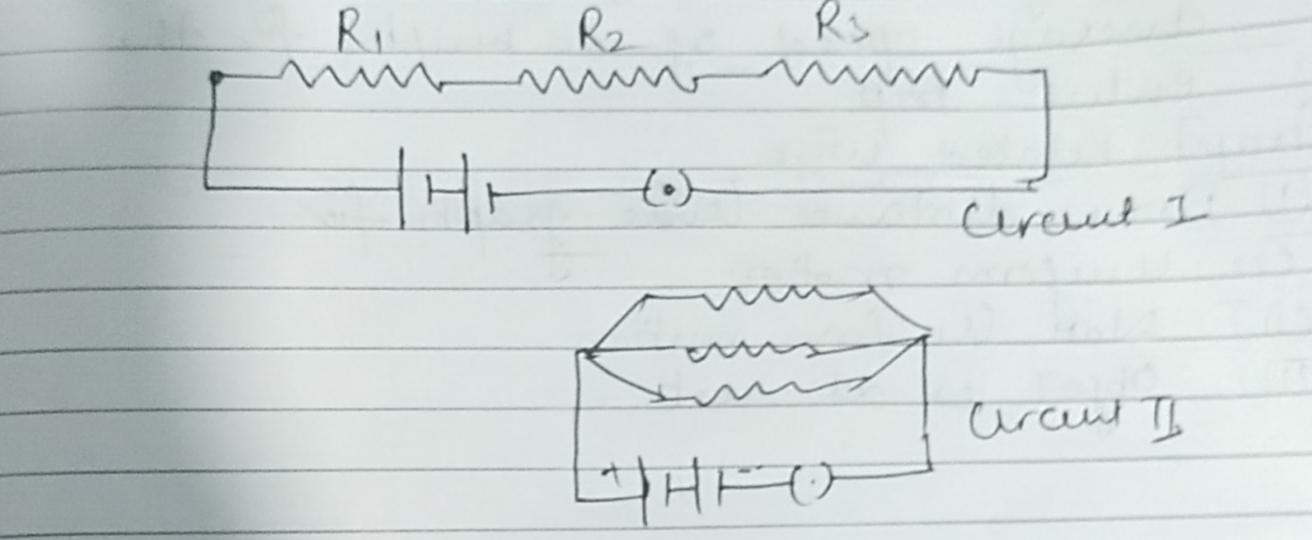 R1 R2 R3
Circuit I
Circuit II
+ -